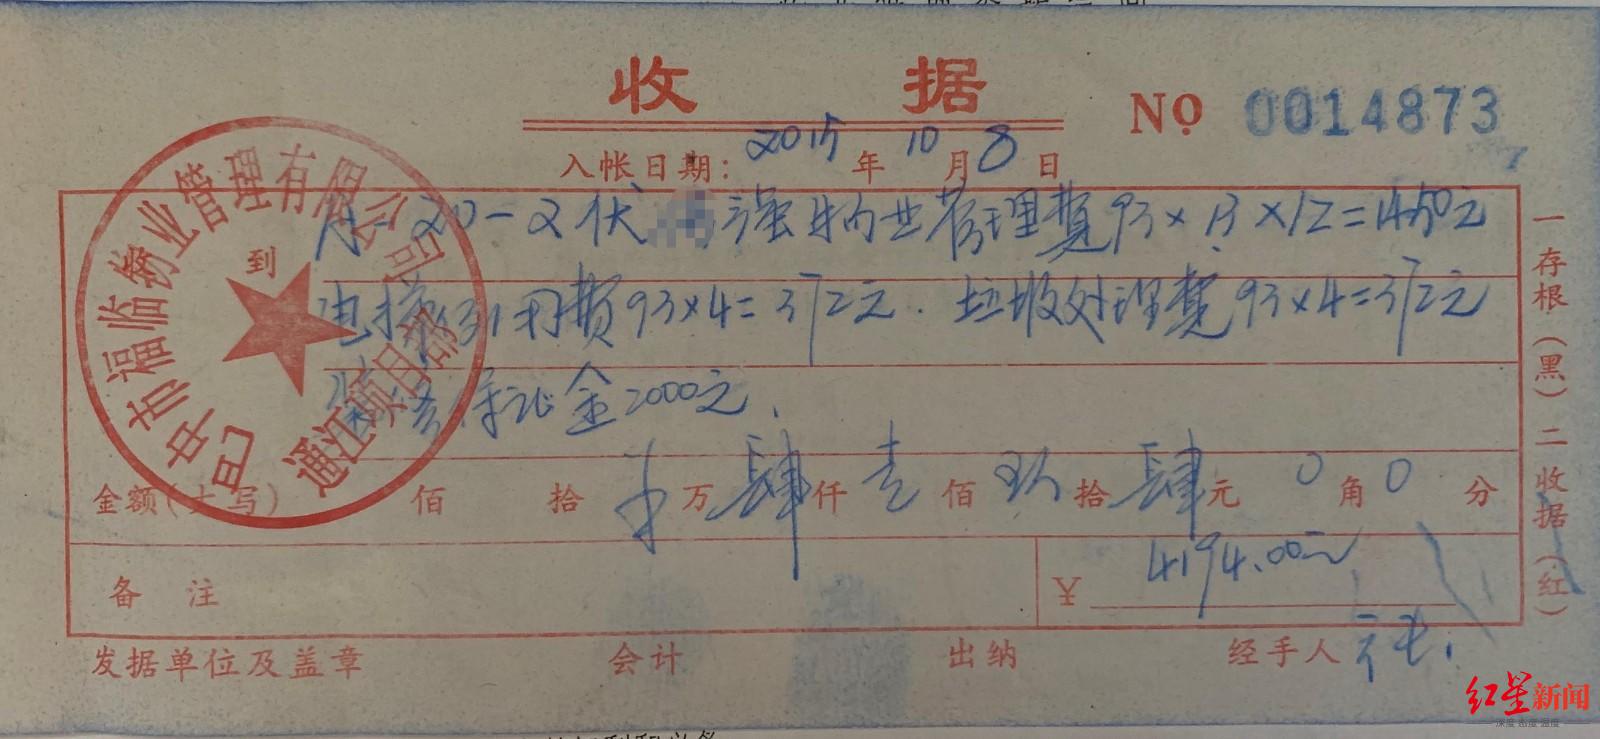 收 据
NO 0014873
入帐日期: 2015 年 10 月 8 日
巴中市福临物业管理有限公司
通江项目部
到
20-2 伏 强物业管理费93×1.3×12=1450元
引用费93×4=372元. 垃圾处理费93×4=372元
保证金2000元、
金额(大写) 佰 拾 万 肆 仟 壹 佰 玖 拾 肆 元 0 角 0 分
备 注
¥ 4194.00元
发据单位及盖章 会计 出纳 经手人
一存根(黑) 二收据(红)
红星新闻
深度 态度 温度